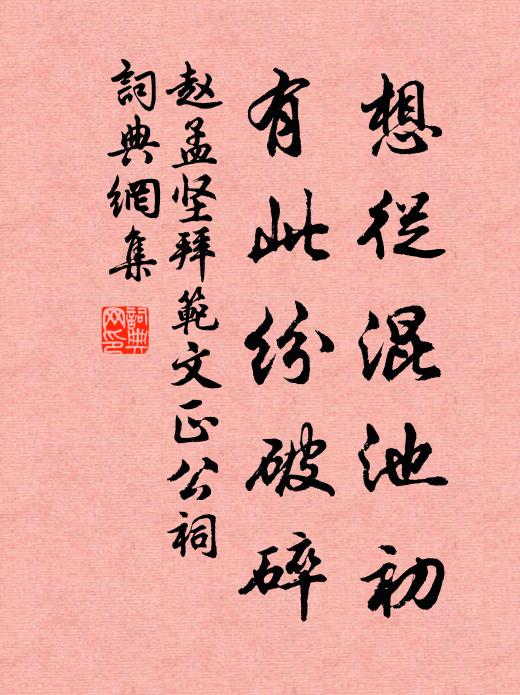 想從混池初
有此紛破碎
赵孟坚拜範文正公祠
詞典網集
詞典
网印